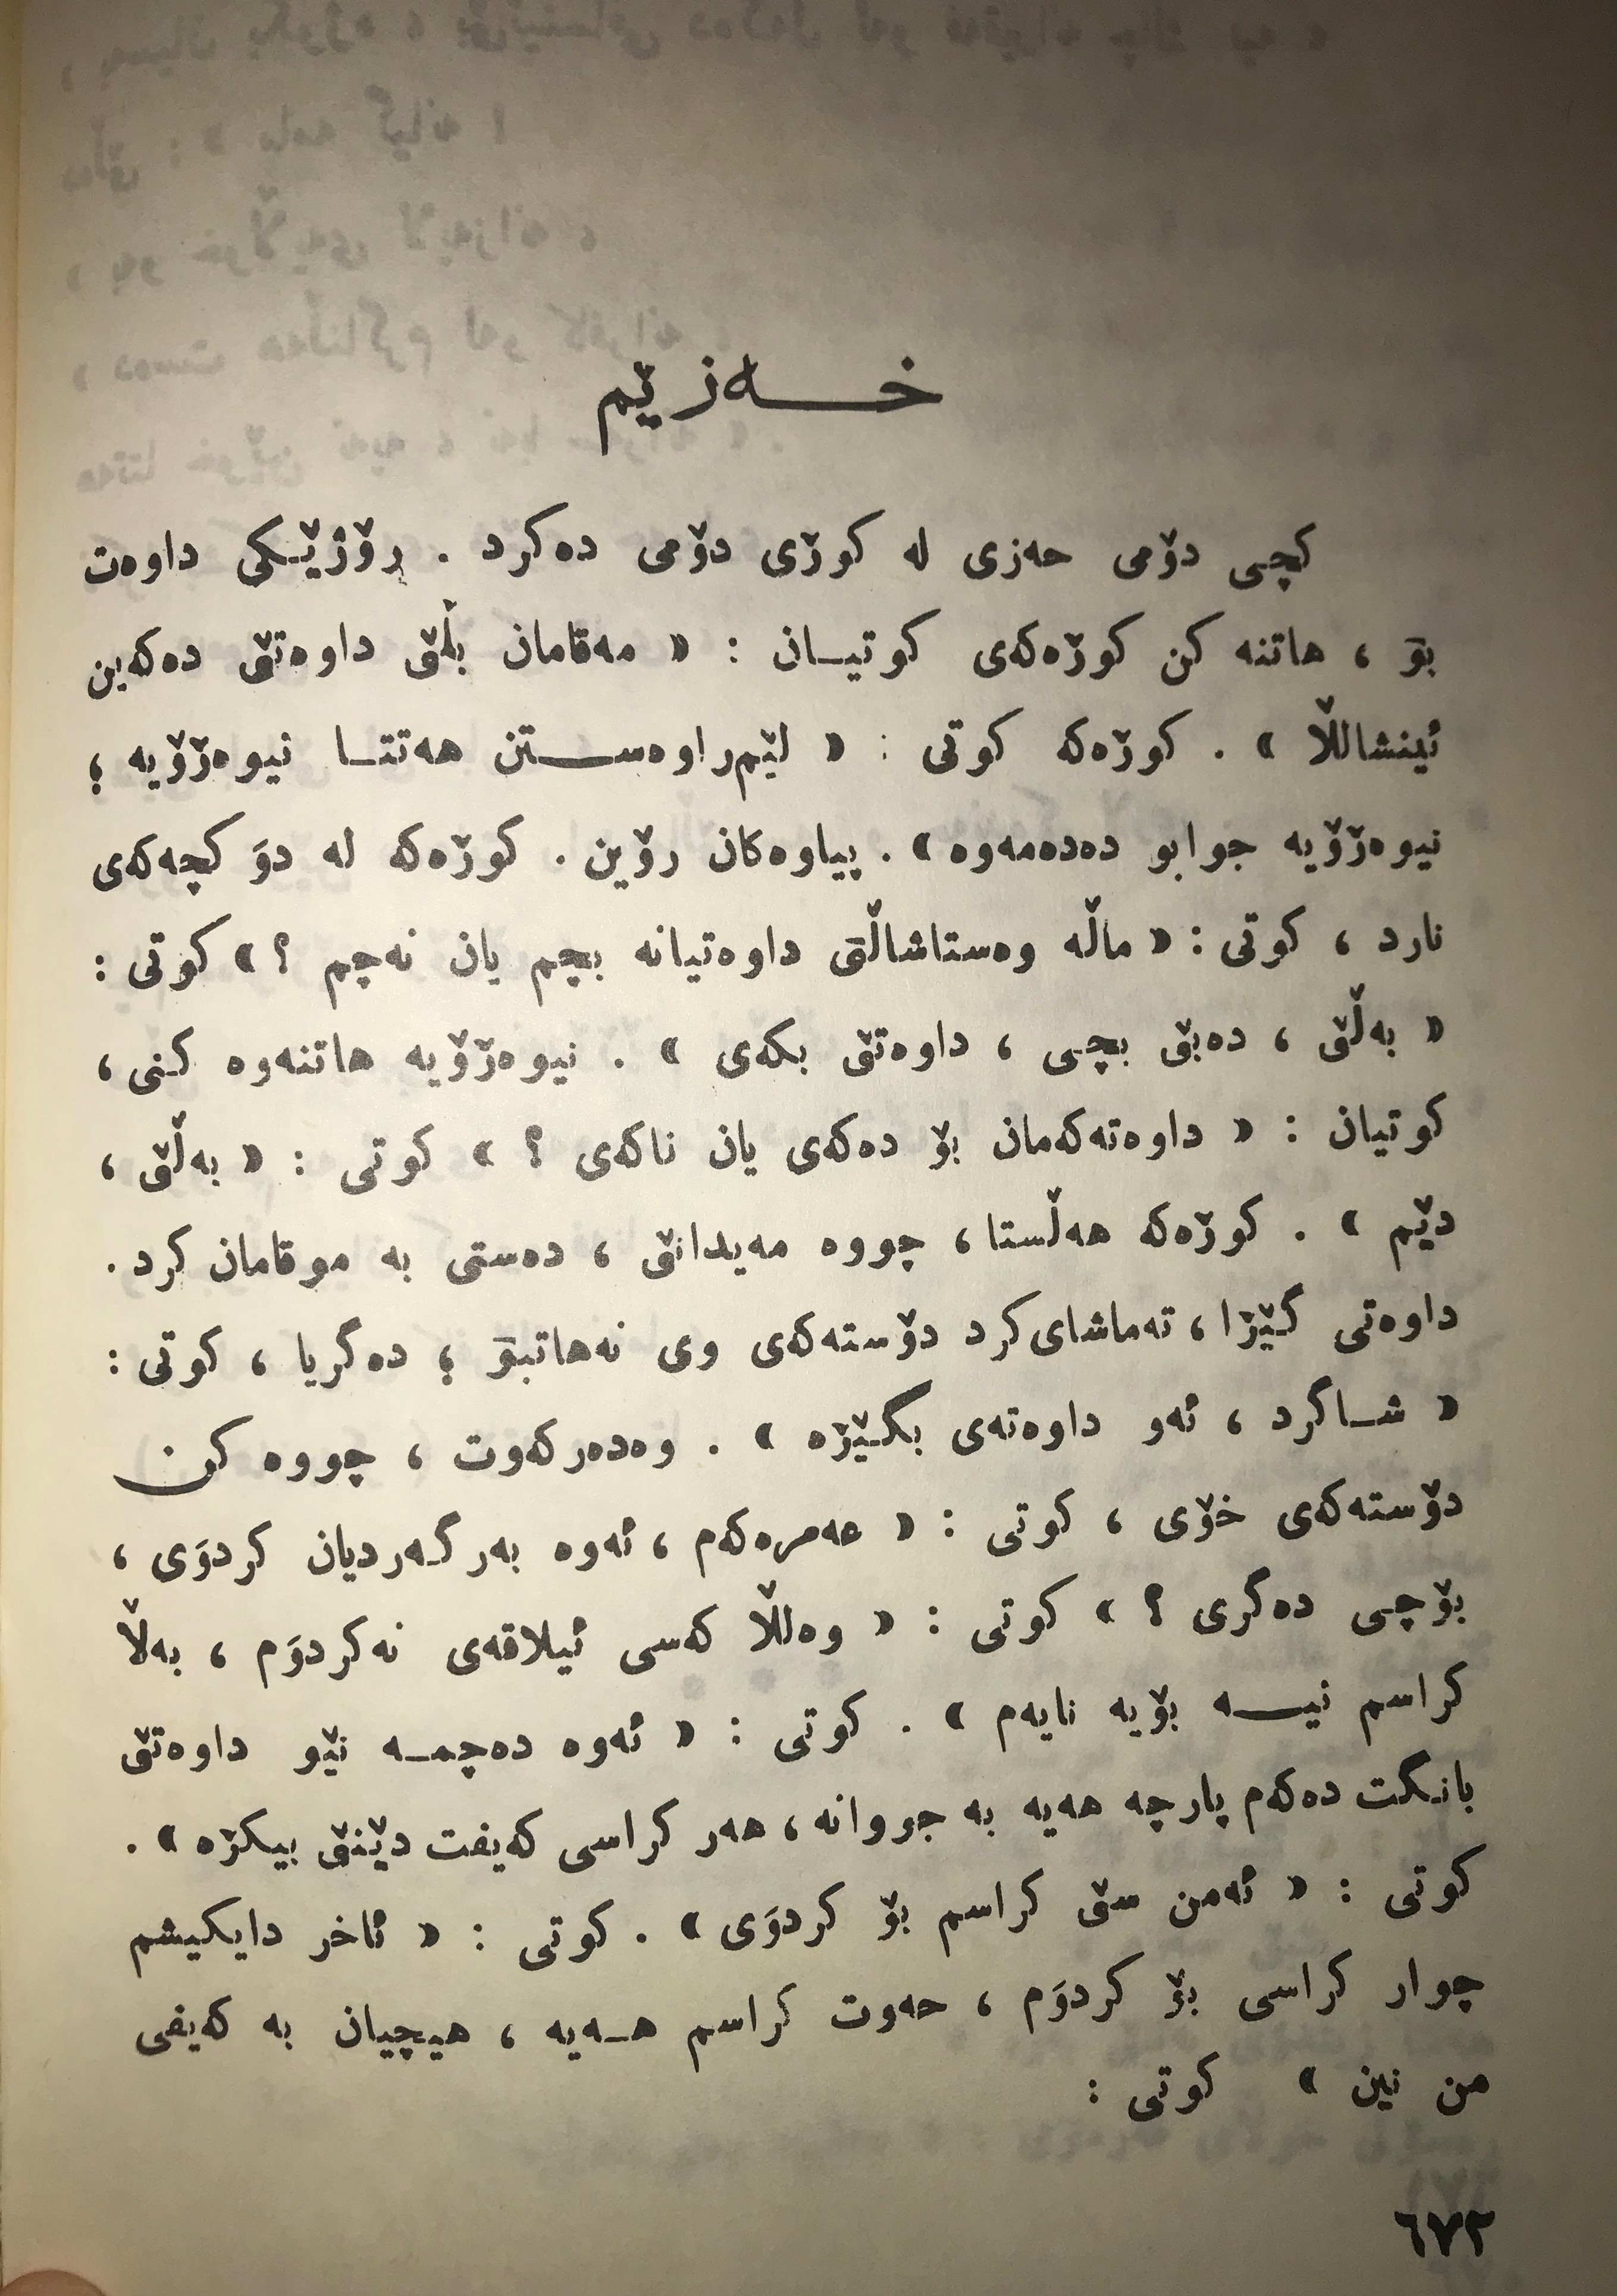 خــەزێم
کچی دۆمی حەزی لە کوڕی دۆمی دەکرد . ڕۆژێکی داوەت
بۆ ، هاتنە کن کوڕەکەی کوتیان : « مەقامان بڵێ داوەتێ دەکەین
ئینشاللّا » . کوڕەکە کوتی : « لێم‌راوەستن هەتتا نیوەڕۆیە ؛
نیوەڕۆیە جوابو دەدەمەوە » . پیاوەکان رۆین . کوڕەکە لە دوَ کچەکەی
نارد ، کوتی : « ماڵە وەستاشاڵێ داوەتیانە بچم یان نەچم ؟ » کوتی :
« بەڵێ ، دەبێ بچی ، داوەتێ بکەی » . نیوەڕۆیە هاتنەوە کنی ،
کوتیان : « داوەتەکەمان بۆ دەکەی یان ناکەی ؟ » کوتی : « بەڵێ ،
دێم » . کوڕەکە هەڵستا ، چووە مەیدانێ ، دەستی بە موقامان کرد .
داوەتی گێڕا ، تەماشای کرد دۆستەکەی وی نەهاتبۆ ؛ دەگریا ، کوتی :
« شاگرد ، ئەو داوەتەی بگێڕە » . وەدەرکەوت ، چووە کن
دۆستەکەی خۆی ، کوتی : « عەمرەکەم ، ئەوە بەرگەردیان کردوَی ،
بۆچی دەگری ؟ » کوتی : « وەللّا کەسی ئیلاقەی نەکردوَم ، بەڵا
کراسم نیسە بۆیە نایەم » . کوتی : « ئەوە دەچمە نێو داوەتێ
بانگت دەکەم پارچە هەیە بە جووانە ، هەر کراسی کەیفت دێنێ بیکڕە » .
کوتی : « ئەمن سێ کراسم بۆ کردوَی » . کوتی : « ئاخر دایکیشم
چوار کراسی بۆ کردوَم ، حەوت کراسم هەیە ، هیچیان بە کەیفی
من نین » کوتی :
٦٧٢